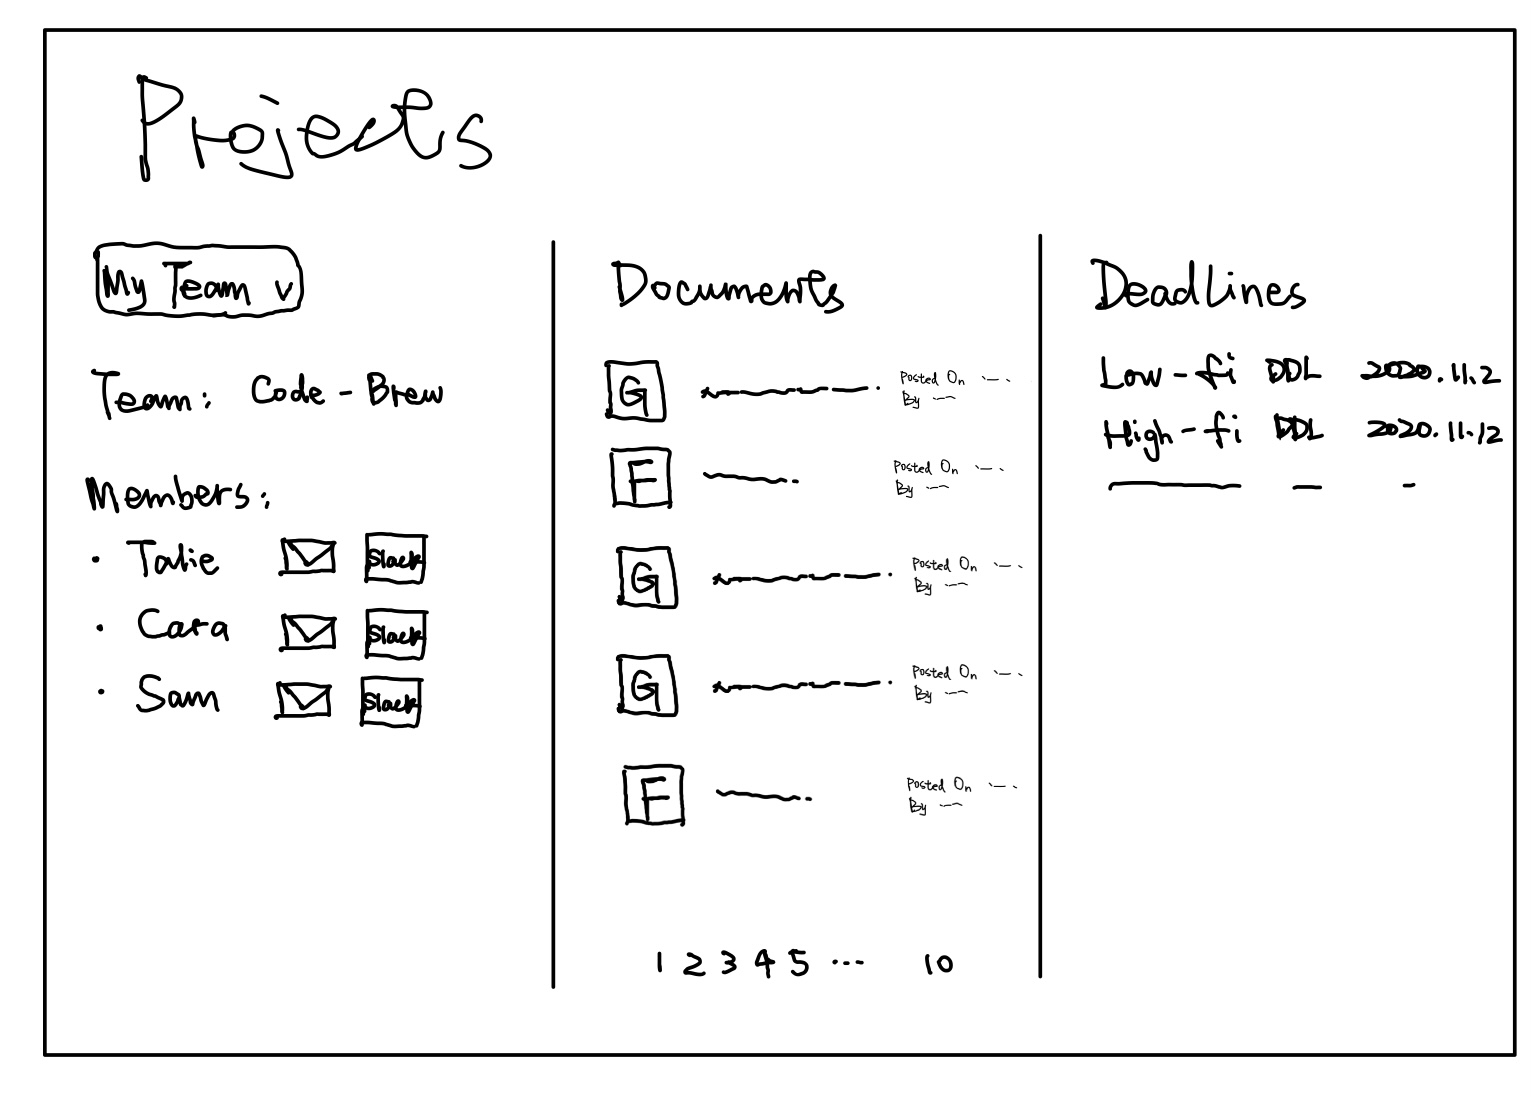 Projects
My Team v
Team: Code-Brew
Members:
• Talie Slack
• Cara Slack
• Sam Slack
Documents
G Posted On
By
F Posted On
By
G Posted On
By
G Posted On
By
F Posted On
By
1 2 3 4 5 ... 10
Deadlines
Low-fi DDL 2020.11.2
High-fi DDL 2020.11.12